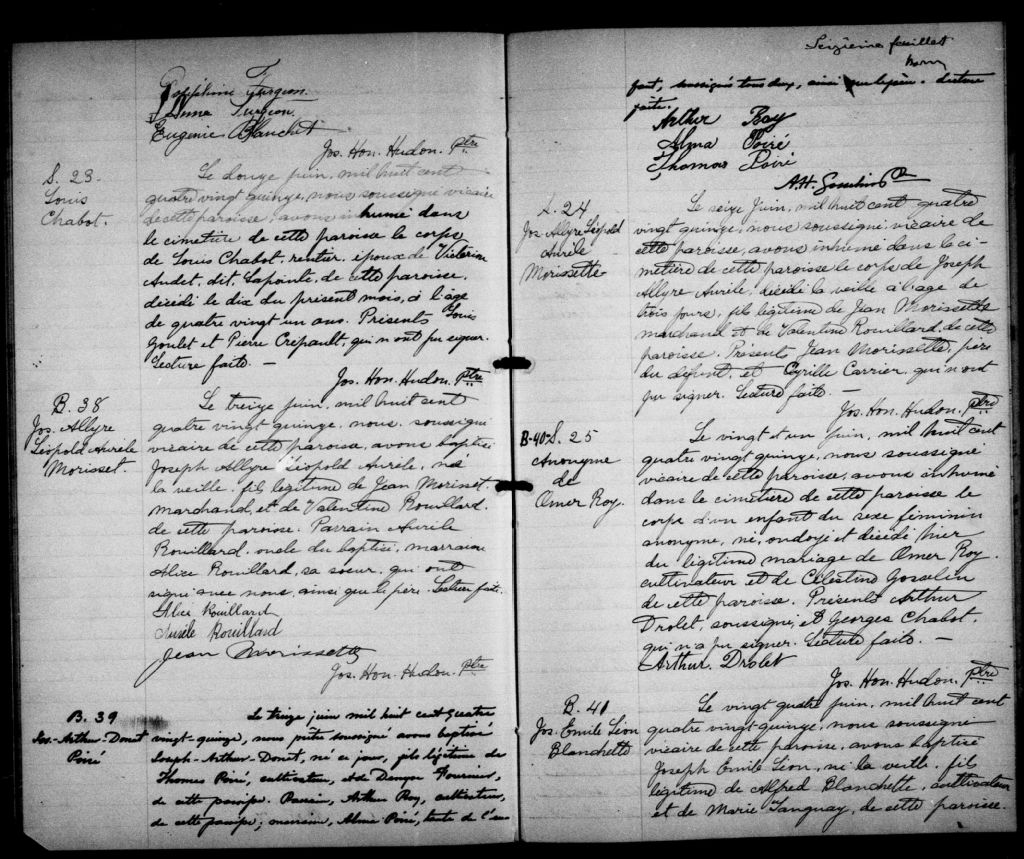 Turgeon
Anna Turgeon
Eugenie Blanchet
Jos. Hon. Hudon. Ptre
S. 23.
Louis
Chabot.
Le douze juin, mil huit cent
quatre vingt quinze, nous soussigné vicaire
de cette paroisse, avons inhumé dans
le cimetière de cette paroisse le corps
de Louis Chabot, rentier, époux de Victorine
Audet, dit, Lapointe, de cette paroisse,
décédé le dix du présent mois, à l'âge
de quatre vingt un ans. Présents Louis
Goulet et Pierre Crepault, qui n'ont pu signer.
Lecture faite. —
Jos. Hon. Hudon. Ptre
B. 38
Jos. Allyre
Léopold Aurèle
Morisset.
Le treize juin, mil huit cent
quatre vingt quinze, nous, soussigné
vicaire de cette paroisse, avons baptisé
Joseph Allyre Léopold Aurèle, né
la veille, fils légitime de Jean Morisset
marchand, et de Valentine Rouillard,
de cette paroisse. Parrain Aurèle
Rouillard, oncle du baptisé, marraine
Alice Rouillard, sa soeur, qui ont
signé avec nous, ainsi que le père. Lecture faite.
Alice Rouillard
Aurèle Rouillard
Jean Morissette
Jos. Hon. Hudon. Ptre
B. 39
Jos-Arthur-Donat
Poiré
Le treize juin mil huit cent quatre
vingt-quinze, nous prêtre soussigné avons baptisé
Joseph-Arthur-Donat, né ce jour, fils légitime de
Thomas Poiré, cultivateur, et de Fournier,
de cette paroisse. Parrain, Arthur Roy, cultivateur,
de cette paroisse; marraine, Alma Poiré, tante de l'en
Seizième feuillet
fant, soussignés tous deux, ainsi que le père. Lecture
faite.
Arthur Roy
Alma Poiré
Thomas Poiré
A.H. Gosselin Ptre
S. 24
Jos. Allyre Léopold
Aurèle
Morissette
Le seize Juin, mil huit cent quatre
vingt quinze, nous soussigné, vicaire de
cette paroisse, avons inhumé dans le ci-
metière de cette paroisse le corps de Joseph
Allyre Aurèle, décédé la veille à l'âge de
trois jours, fils légitime de Jean Morissette
marchand et de Valentine Rouillard, de cette
paroisse. Présent, Jean Morissette, père
du défunt, et Cyrille Carrier, qui n'ont
pu signer. Lecture faite —
Jos. Hon. Hudon. Ptre
B-40-S. 25
Anonyme
de
Omer Roy.
Le vingt et un juin, mil huit cent
quatre vingt quinze, nous soussigné
vicaire de cette paroisse, avons inhumé
dans le cimetière de cette paroisse le
corps d'un enfant du sexe féminin
anonyme, né, ondoyé et décédé hier
du légitime mariage de Omer Roy
cultivateur et de Célestine Gosselin
de cette paroisse. Présents Arthur
Drolet, soussigné, et Georges Chabot,
qui n'a pu signer. Lecture faite. —
Arthur Drolet
Jos. Hon. Hudon. Ptre
B. 41
Jos. Emile Léon
Blanchette
Le vingt quatre juin, mil huit cent
quatre vingt quinze, nous soussigné
vicaire de cette paroisse, avons baptisé
Joseph Emile Léon, né la veille, fils
légitime de Alfred Blanchette, cultivateur
et de Marie Tanguay, de cette paroisse.